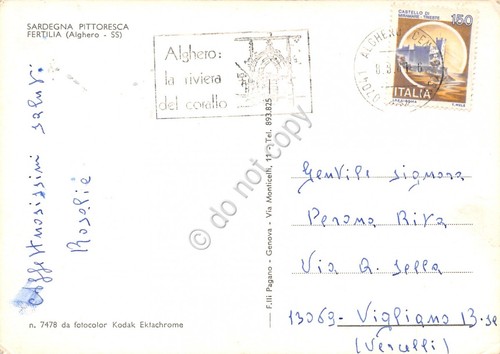 SARDEGNA PITTORESCA
FERTILIA (Alghero - SS)
Alghero:
la riviera
del corallo
CASTELLO DI
MIRAMARE - TRIESTE
150
ITALIA
ALGHERO
Affettuosissimi saluti
Rosalia
n. 7478 da fotocolor Kodak Ektachrome
F.lli Pagano - Genova - Via Monticelli, 11 - Tel. 893.825
© do not copy
Gentile signora
Perona Riva
Via Q. Sella
13069 - Vigliano B.se
(Vercelli)